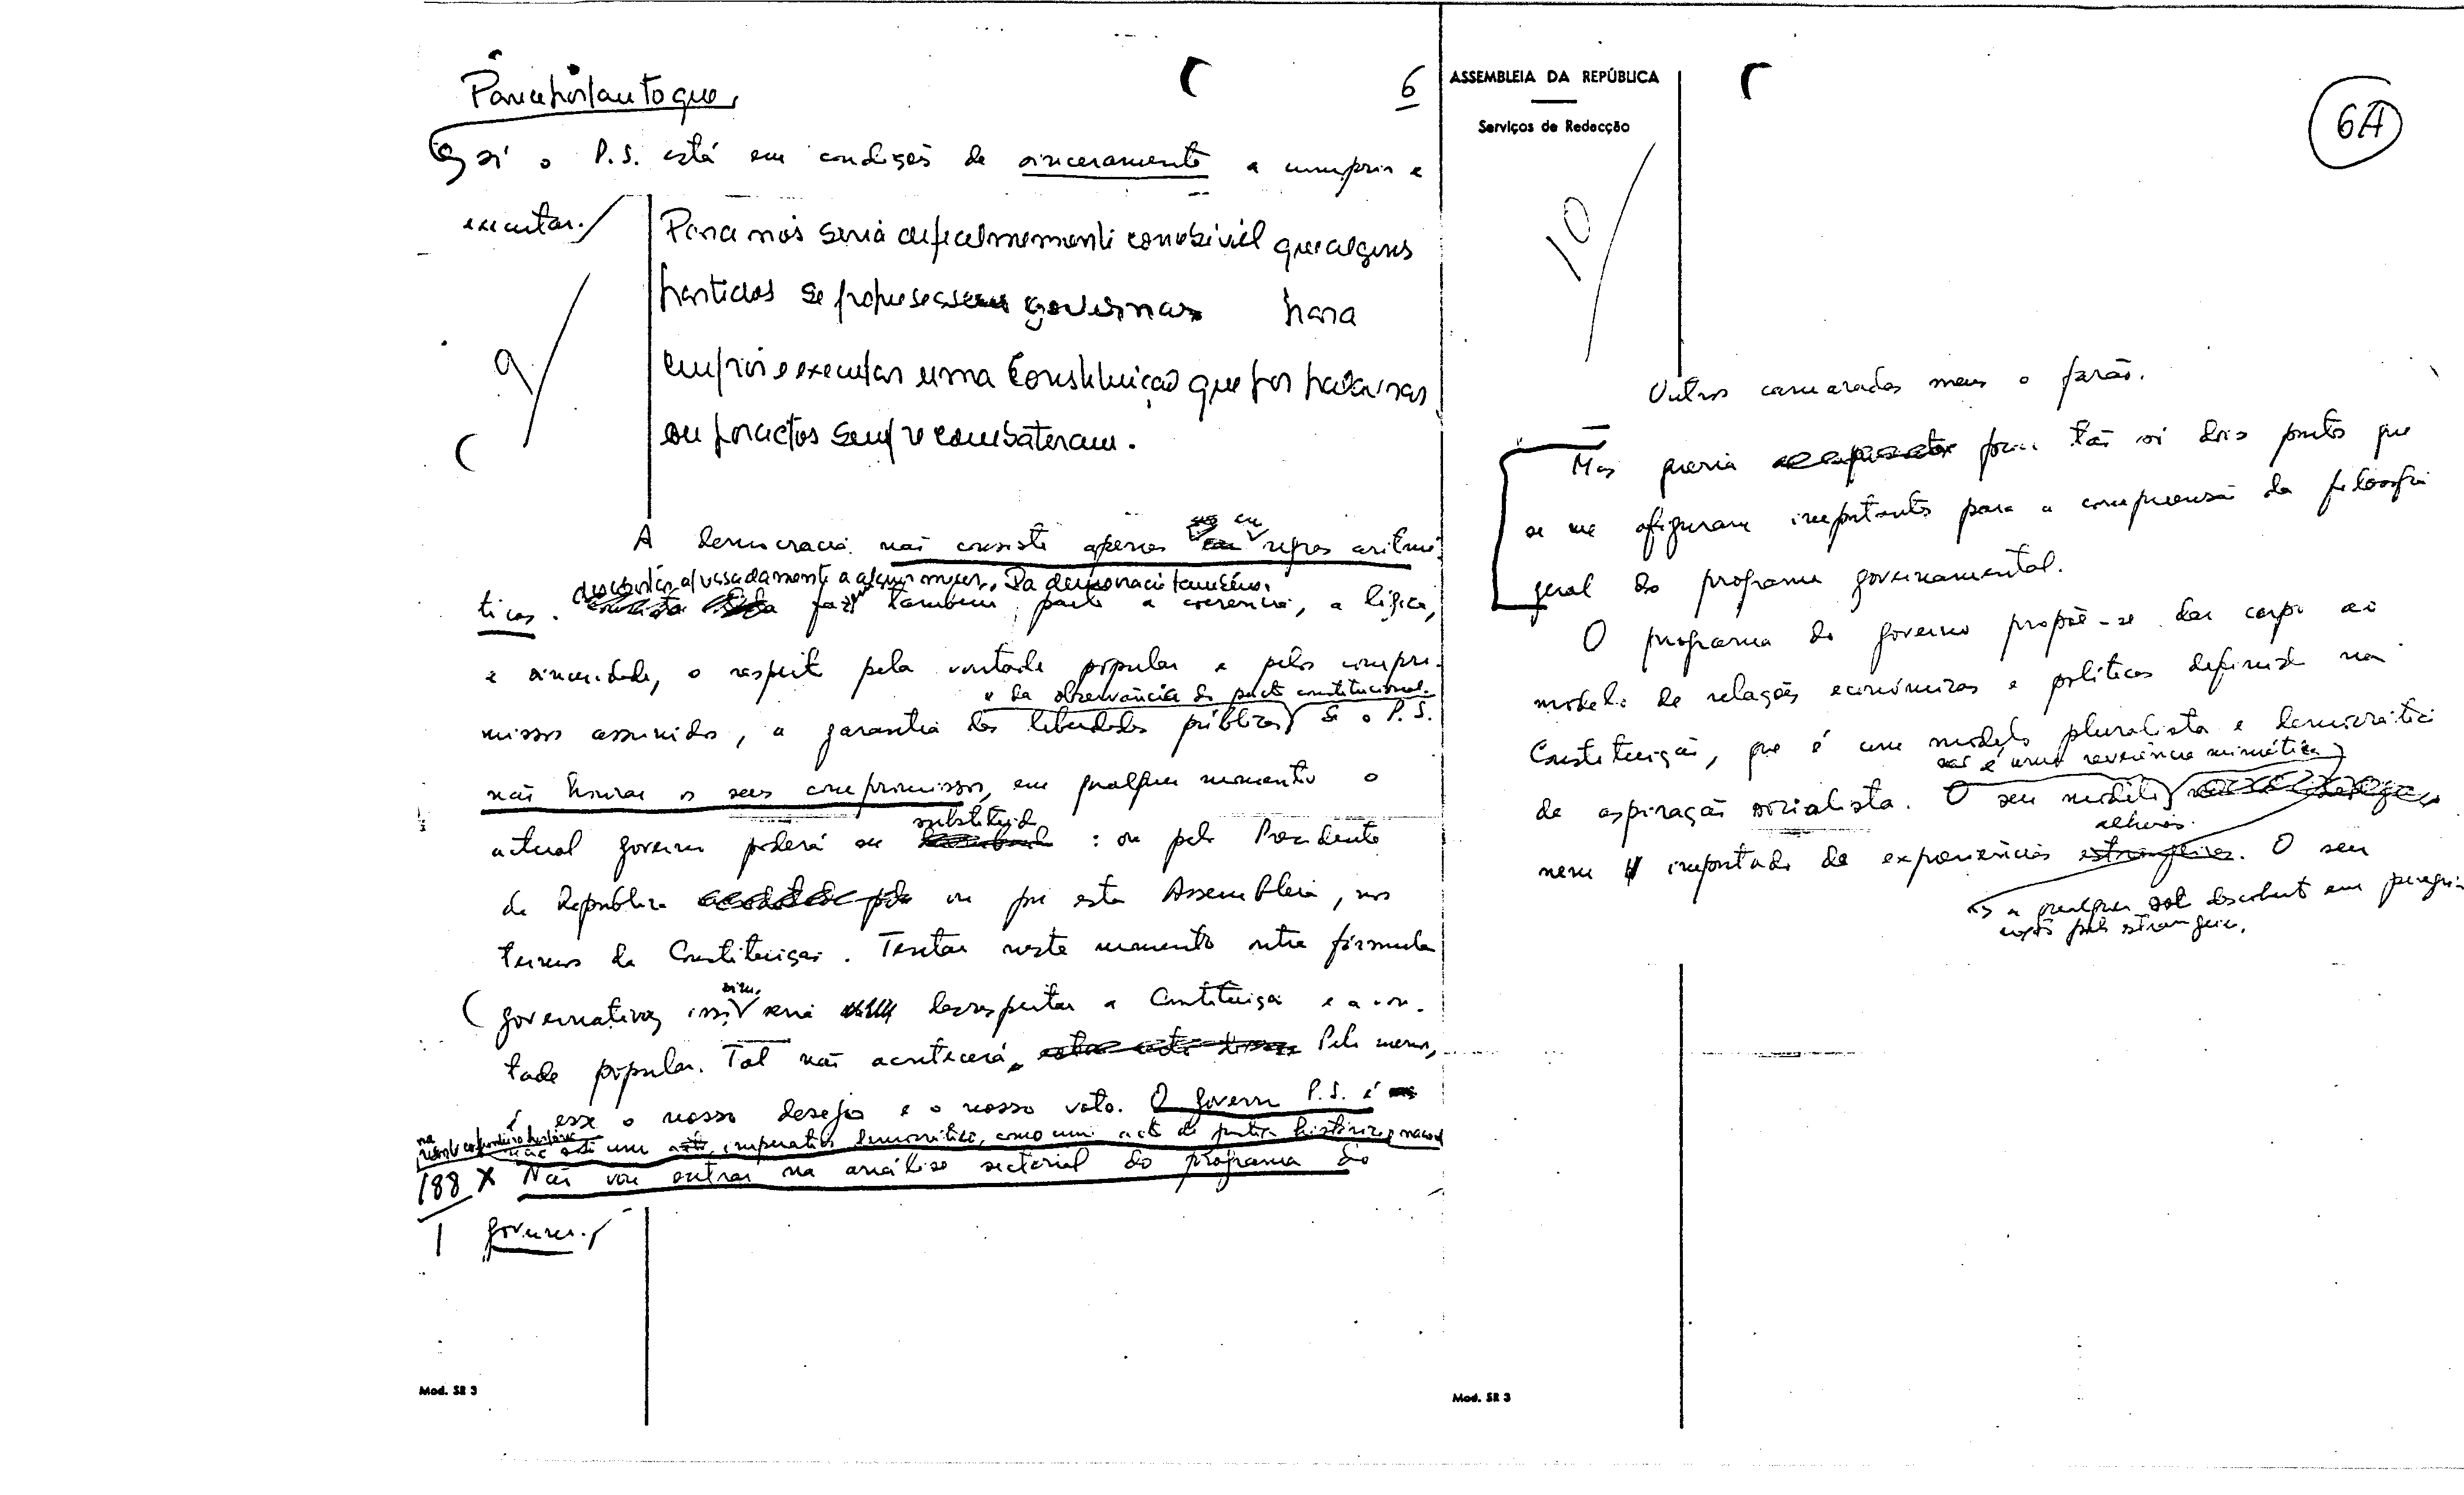 Parece portanto que,
só o P.S. está em condições de sinceramente a cumprir e
executar.
Para nós seria dificilmente concebível que alguns
partidos se propusessem governar para
cumprir e executar uma Constituição que por palavras
ou por actos sempre combateram.
9
A democracia não consiste apenas em regras aritmé-
descobertas apressadamente a algum mês. Da democracia também
ticas. fazem também parte a coerência, a lógica,
a sinceridade, o respeito pela vontade popular e pelos compro-
e da observância do pacto constitucional.
missos assumidos, a garantia das liberdades públicas Se o P.S.
não honrar os seus compromissos, em qualquer momento o
substituído
actual governo poderá ser : ou pelo Presidente
da República ou por esta Assembleia, nos
termos da Constituição. Tentar neste momento outra fórmula
sim,
governativa, isso seria desrespeitar a Constituição e a von-
tade popular. Tal não acontecerá. Pelo menos,
é esse o nosso desejo e o nosso voto. O governo P.S. é
não só um imperativo democrático, como um acto de justiça histórica,
188 X Não vou entrar na análise sectorial do programa do
1 governo.
Mod. SR 3
6
ASSEMBLEIA DA REPÚBLICA
Serviços de Redacção
6A
10
Outros camaradas meus o farão.
Mas queria focar tão só dois pontos que
se me afiguram importantes para a compreensão da filosofia
geral do programa governamental.
O programa do governo propõe-se dar corpo ao
modelo de relações económicas e políticas definido na
Constituição, que é um modelo pluralista e democrático
não é uma reverência mimética
de aspiração socialista. O seu modelo
alheias.
nem importado de experiências estrangeiras. O seu
a qualquer sol descoberto em peregri-
nações pelo estrangeiro.
Mod. SR 3